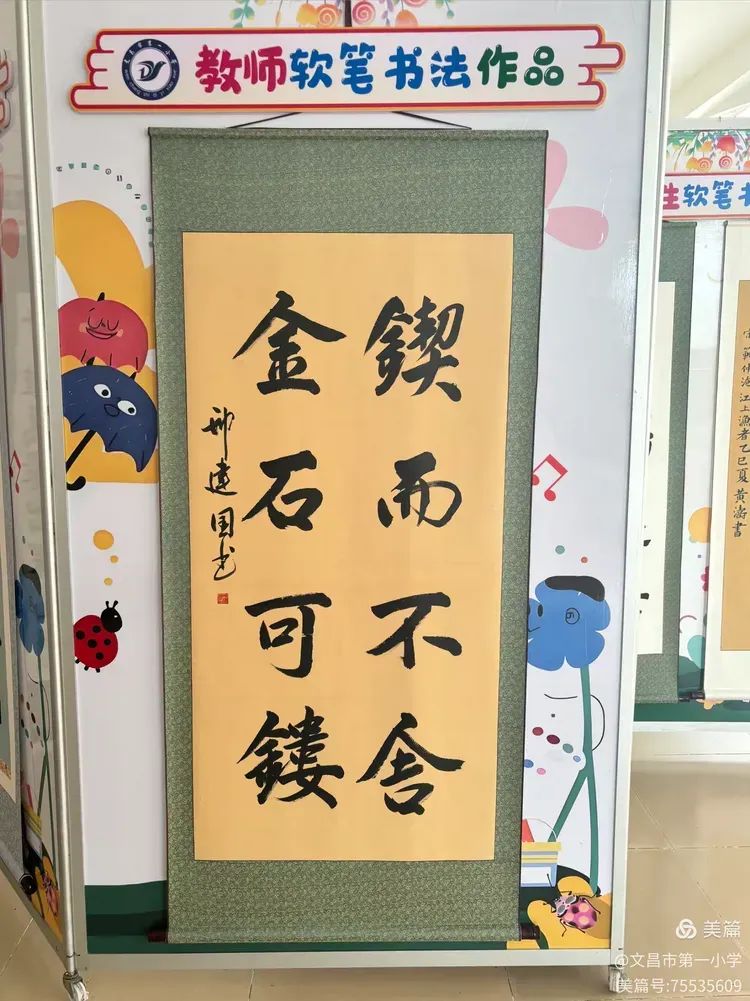 教师软笔书法作品
锲而不舍
金石可镂
邢建国书
生软笔书
江上渔者乙巳夏黄涵书
美篇
@文昌市第一小学
美篇号:75535609